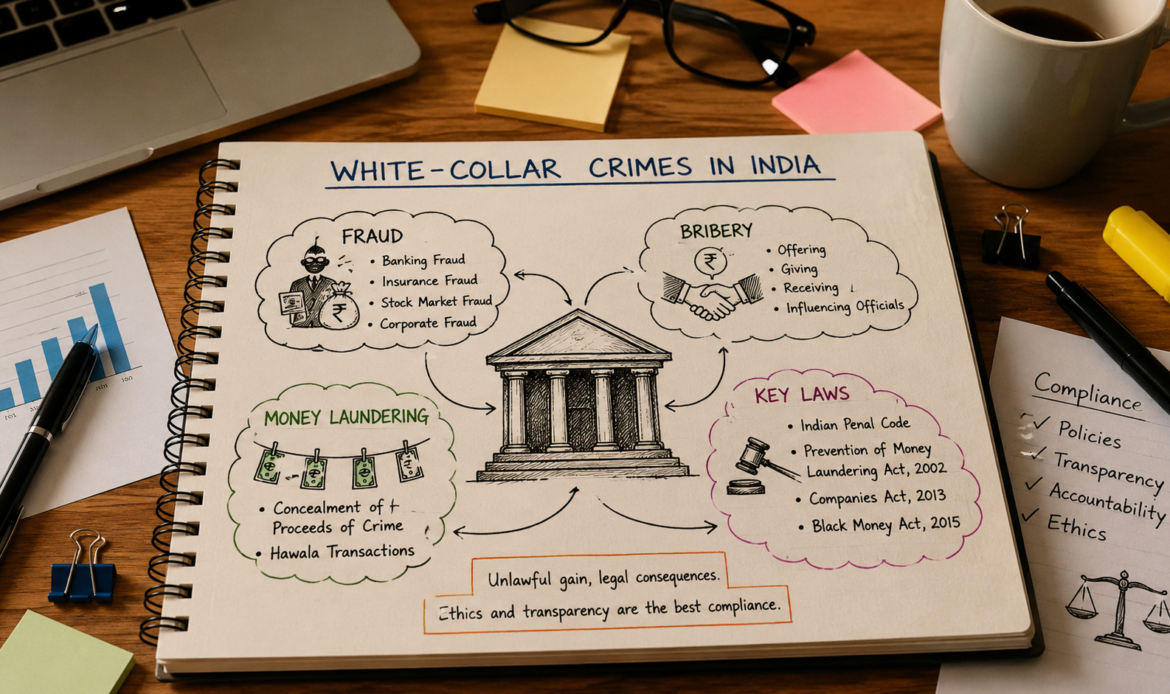 WHITE-COLLAR CRIMES IN INDIA
FRAUD
• Banking Fraud
• Insurance Fraud
• Stock Market Fraud
• Corporate Fraud
₹
BRIBERY
₹
• Offering
• Giving
• Receiving
• Influencing Officials
MONEY LAUNDERING
• Concealment of
Proceeds of Crime
• Hawala Transactions
KEY LAWS
• Indian Penal Code
• Prevention of Money
Laundering Act, 2002
• Companies Act, 2013
• Black Money Act, 2015
Unlawful gain, legal consequences.
Ethics and transparency are the best compliance.
Compliance
✓ Policies
✓ Transparency
✓ Accountability
✓ Ethics